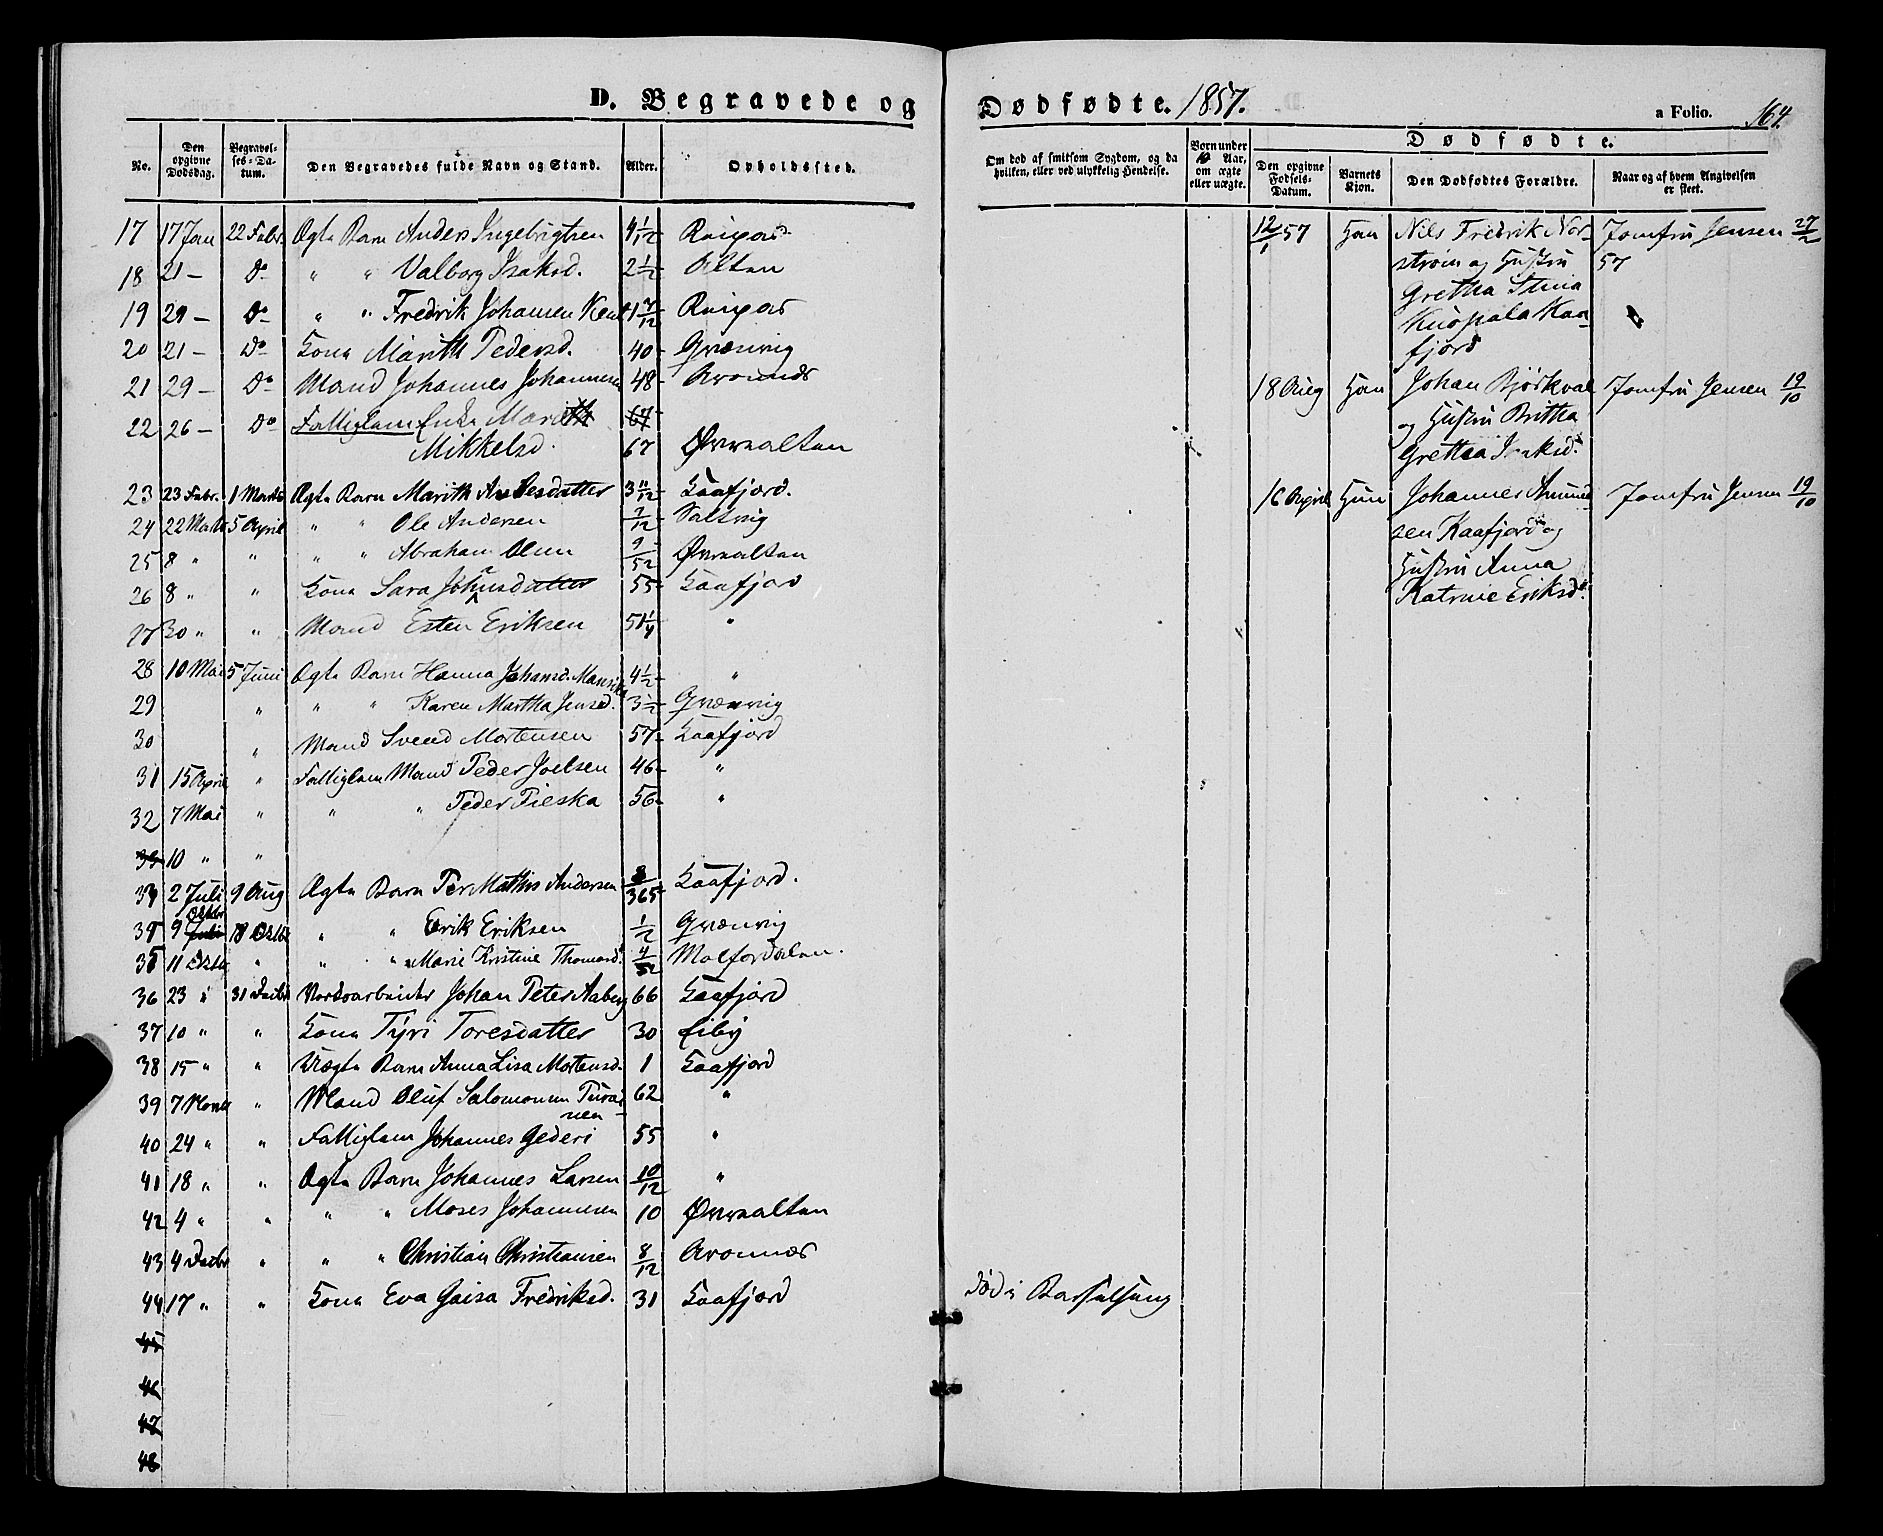 D. Begravede og
No.
Den opgivne Dødsdag.
Begravelses-Datum.
Den Begravedes fulde Navn og Stand.
Alder.
Opholdssted.
17 17 Jan 22 Febr. Ægte Barn Anders Ingebrigtsen 4 1/12 Raipas
18 21 — Do " " Valborg Isaksd. 2 1/2 Alten
19 29 — Do " " Fredrik Johansen 1 7/12 Raipas
20 21 — Do Kone Marith Pedersd. 40 Qvænvig
21 29 — Do Mand Johannes Johannesen 48 Aronnæs
22 26 — Do Fattiglem Enke Marith
Mikkelsd. 67 Øvrealten
23 23 Febr. 1 Marts Ægte Barn Marith Andersdatter 3 11/12 Kaafjord.
24 22 Marts 5 April " " Ole Andersen 7/12 Saltvig
25 8 " " " " Abraham Olsen 9/52 Øvrealten
26 8 " " Kone Sara Johansdatter 55 Kaafjord
27 30 " " Mand Esten Eriksen 51 1/4 "
28 10 Mai 5 Juni Ægte Barn Hanna Johansd. 4 1/2 "
29 " " " Karen Martha Jensd. 3 1/2 Qvænvig
30 " Mand Svend Mortensen 57 Kaafjord
31 15 April " Fattiglem Mand Peder Joelsen 46 "
32 7 Mai " " " Peder Pieska 56 "
33 10 " "
34 2 Juli 9 Aug Ægte Barn Per Mathis Andersen 8/365 Kaafjord.
35 9 Oktbr 18 Oktbr " " Erik Eriksen 1/2 Qvænvig
35 11 Oktbr " " " Marie Kristine Thomasd. 4/52 Matforsdalen.
36 23 " 31 Decbr Johan Peter Aaberg 66 Kaafjord
37 10 " " Kone Tyri Toresdatter 30 Eiby
38 15 " " Uægte Barn Anna Lisa Mortensd. 1 Kaafjord
39 7 Novbr " Mand Oluf Salomonsen Turai-
nen 62 "
40 24 " " Fattiglem Johannes Gederi 55 "
41 18 " " Ægte Barn Johannes Larsen 10/12 "
42 4 " " " " Moses Johannesen 10 Øvrealten
43 4 Decbr " " " Christian Christiansen 8/12 Aronnæs
44 17 " " Kone Eva Gaisa Fredriksd. 31 Kaafjord
45
46
47
48
Dødfødte. 1857.
a Folio. 164.
Om død af smitsom Sygdom, og da hvilken, eller ved ulykkelig Hendelse.
Børn under 10 Aar, om ægte eller uægte.
Dødfødte.
Den opgivne Fødsels-Datum.
Barnets Kjøn.
Den Dødfødtes Forældre.
Naar og af hvem Angivelsen er skeet.
12/1 57 Han Nils Fredrik Nor- Jomfru Jensen 27/2
strøm og Hustru 57
Gretha Stina
Kuopala Kaa-
fjord
18 Aug Han Johan Bjørkval Jomfru Jensen 19/10
og Hustru Britta
Grettha Isaksd.
16 April Hun Johannes Amund- Jomfru Jensen 19/10
sen Kaafjord og
Hustru Anna
Katrine Eriksd.
Død i Barselseng